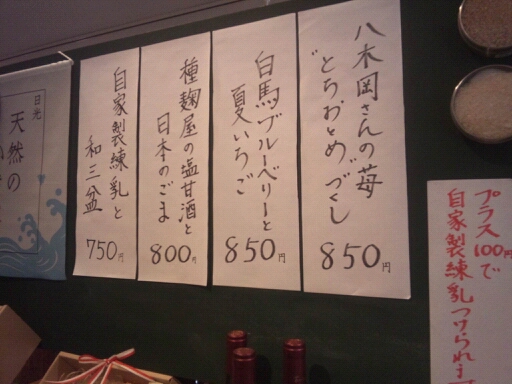 八木岡さんの苺
"とちおとめ"づくし
850円
白馬ブルーベリーと
夏いちご
850円
種麹屋の塩甘酒と
日本のごま
800円
自家製練乳と
和三盆
750円
日光
天然の
プラス100円で
自家製練乳つけられま